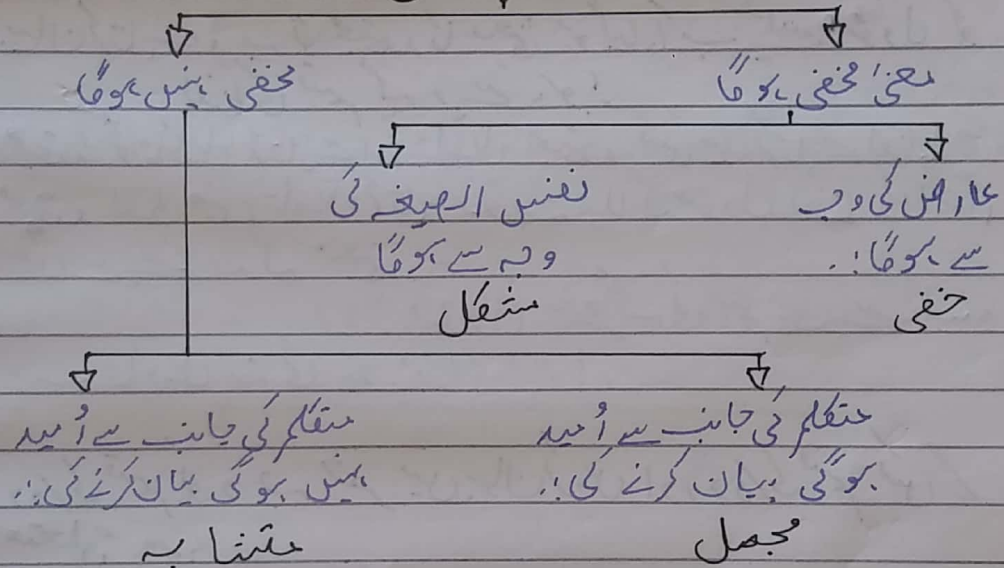 معنیٰ مخفی ہوگا
مخفی نہیں ہوگا
عارض کی وجہ
سے ہوگا:.
خفی
نفس الصیغہ کی
وجہ سے ہوگا
مشکل
متکلم کی جانب سے اُمید
ہوگی بیان کرنے کی:.
مجمل
متکلم کی جانب سے اُمید
نہیں ہوگی بیان کرنے کی:.
متشابہ